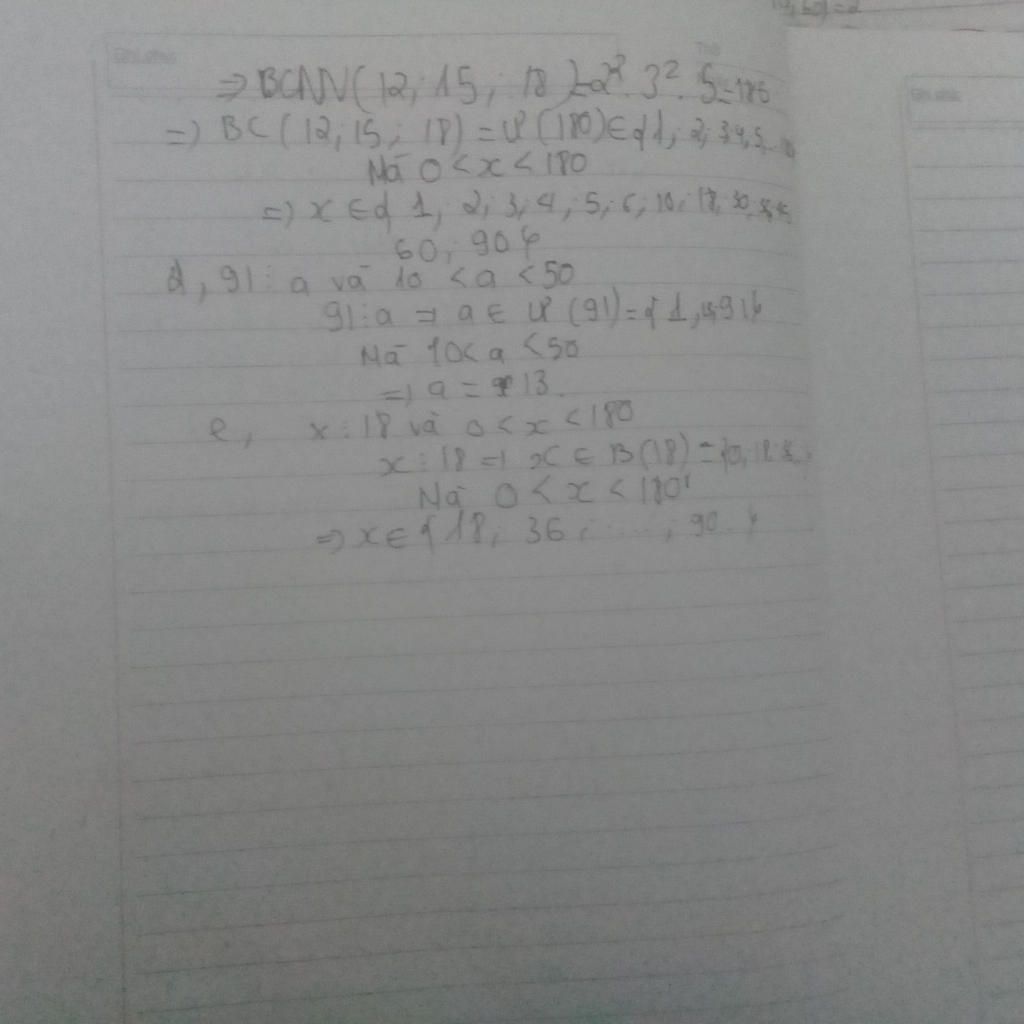 ⇒ BCNN(12; 15; 18)=2². 3². 5=180
=) BC(12;15; 18) = Ư(180)∈{1; 2; 3,4,5,...
Mà 0<x<180
=) x ∈{ 1; 2; 3; 4; 5; 6; 10; 18; 30
60; 90}
d, 91⋮a và 10 <a <50
91⋮a ⇒ a∈ Ư(91)={1, 91}
Mà 10<a<50
=) a = 13.
e, x⋮18 và 0<x<180
x⋮18 =) x∈ B(18)={0, 18
Mà 0<x<180
⇒ x∈{18; 36; .....; 90.}